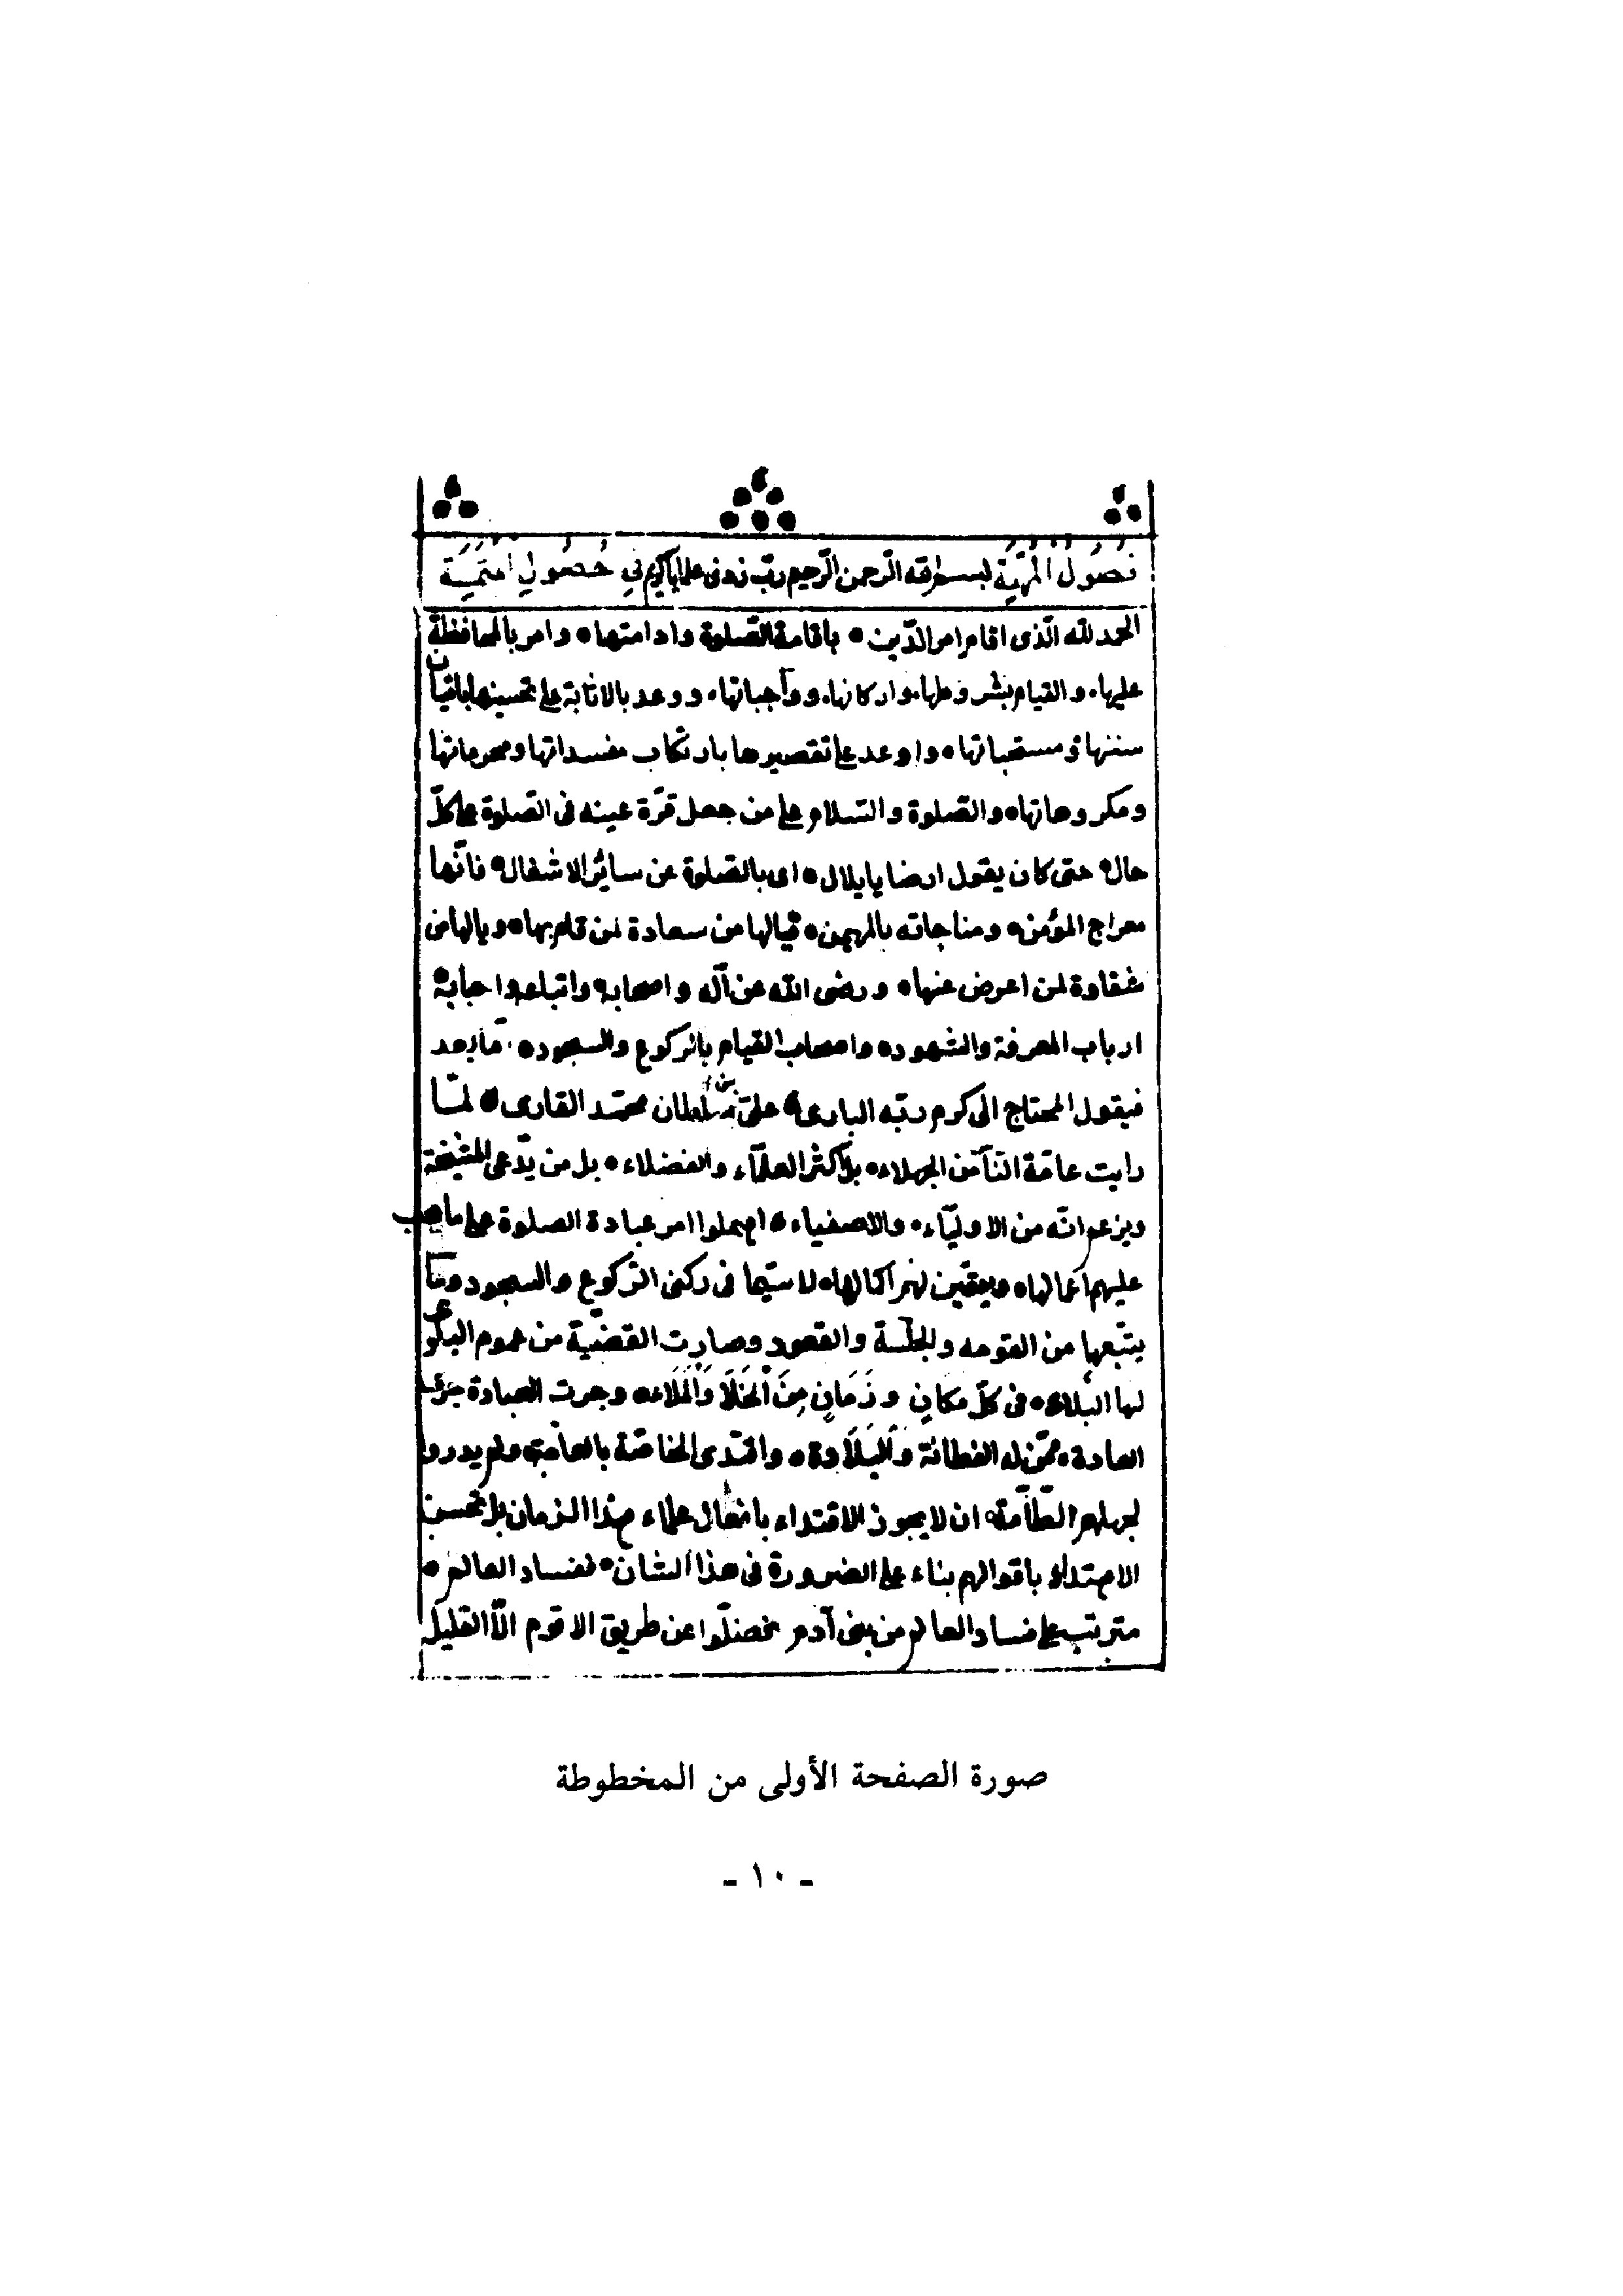 فصول المهمة بسم الله الرحمن الرحيم رب زدني علما يا كريم في حصول المتمة
الحمد لله الّذى اقام امر الدّين باقامة الصّلوة وادامتها وامر بالمحافظة
عليها والقيام بشروطها واركانها وواجباتها ووعد بالاثابة على تحسينها باتيان
سننها ومستحباتها واوعد على تقصيرها بارتكاب مفسداتها ومحرماتها
ومكروهاتها والصّلوة والسّلام على من جعل قرّة عينه فى الصّلوة على كلّ
حال حتى كان يقول ارحنا يا بلال اى بالصّلوة عن سائر الاشغال فانّها
معراج المؤمن ومناجاته بالمهيمن فيالها من سعادة لمن قام بها ويالها من
شقاوة لمن اعرض عنها ورضى الله عن آله واصحابه واتباعه واحبابه
ارباب المعرفة والشهود واصحاب القيام بالركوع والسجود امّا بعد
فيقول المحتاج الى كرم ربّه البارى علىّ بن سلطان محمّد القارى لمّا
رايت عامّة النّاس من الجهلاء بل اكثر العلمآء والفضلاء بل من يدّعى المشيخة
ويزعم انّه من الاوليآء والاصفياء اهملوا امر عبادة الصلوة على ما يجب
عليهم اعمالها ويتعيّن لهم اكمالها لا سيّما فى ركنى الرّكوع والسجود وما
يتبعها من القومه والجلسة والقعود وصارت القضيّة من عموم البلوى
لها البلاء فى كلّ مكانٍ وزَمَانٍ مِنَ الْخَلَا وَالْمَلَاء وجرت العبادة جرى
العادة ممّن له الفطانة والبَلَادة واقتدى الخاصّة بالعامّة ولم يدروا
لجهلهم الطّآمّة ان لا يجوز الاقتداء بافعال علماء هذا الزمان بل تحسن
الاهتداء باقوالهم بناء على الضرورة فى هذا الشان ففساد العالم
مترتب على فساد العالم من بنى آدم فضلّوا عن طريق الاقوم الّا القليل
صورة الصفحة الأولى من المخطوطة
- ١٠ -